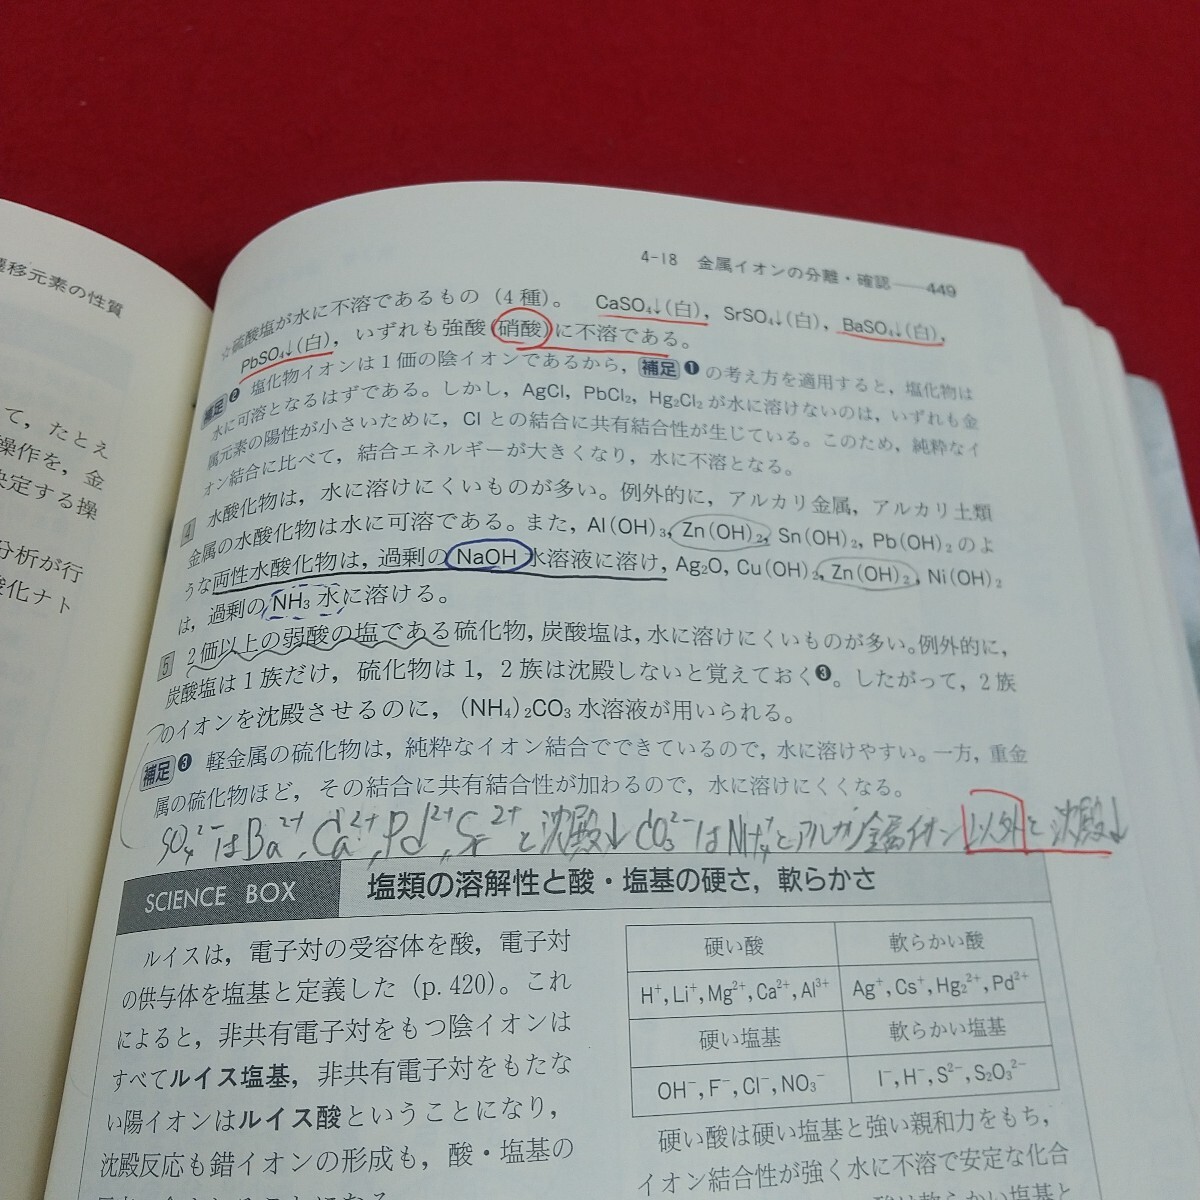 移元素の性質
て，たとえ
操作を，金
決定する操
分析が行
酸化ナト
4-18 金属イオンの分離・確認——449
☆硫酸塩が水に不溶であるもの（4種）。 CaSO₄↓(白)，SrSO₄↓(白)，BaSO₄↓(白)，
PbSO₄↓(白)，いずれも強酸(硝酸)に不溶である。
補足❷ 塩化物イオンは1価の陰イオンであるから，補足❶の考え方を適用すると，塩化物は
水に可溶となるはずである。しかし，AgCl，PbCl₂，Hg₂Cl₂が水に溶けないのは，いずれも金
属元素の陽性が小さいために，Clとの結合に共有結合性が生じている。このため，純粋なイ
オン結合に比べて，結合エネルギーが大きくなり，水に不溶となる。
4 水酸化物は，水に溶けにくいものが多い。例外的に，アルカリ金属，アルカリ土類
金属の水酸化物は水に可溶である。また，Al(OH)₃，Zn(OH)₂，Sn(OH)₂，Pb(OH)₂のよ
うな両性水酸化物は，過剰のNaOH水溶液に溶け，Ag₂O，Cu(OH)₂，Zn(OH)₂，Ni(OH)₂
は，過剰のNH₃水に溶ける。
5 2価以上の弱酸の塩である硫化物，炭酸塩は，水に溶けにくいものが多い。例外的に，
炭酸塩は1族だけ，硫化物は1，2族は沈殿しないと覚えておく❸。したがって，2族
のイオンを沈殿させるのに，(NH₄)₂CO₃水溶液が用いられる。
補足❸ 軽金属の硫化物は，純粋なイオン結合でできているので，水に溶けやすい。一方，重金
属の硫化物ほど，その結合に共有結合性が加わるので，水に溶けにくくなる。
SO₄²⁻はBa²⁺，Ca²⁺，Pd²⁺，Sr²⁺と沈殿↓ CO₃²⁻はNH₄⁺とアルカリ金属イオン以外と沈殿↓
SCIENCE BOX 塩類の溶解性と酸・塩基の硬さ，軟らかさ
ルイスは，電子対の受容体を酸，電子対
の供与体を塩基と定義した（p.420）。これ
によると，非共有電子対をもつ陰イオンは
すべてルイス塩基，非共有電子対をもたな
い陽イオンはルイス酸ということになり，
沈殿反応も錯イオンの形成も，酸・塩基の
硬い酸 軟らかい酸
H⁺，Li⁺，Mg²⁺，Ca²⁺，Al³⁺ Ag⁺，Cs⁺，Hg₂²⁺，Pd²⁺
硬い塩基 軟らかい塩基
OH⁻，F⁻，Cl⁻，NO₃⁻ I⁻，H⁻，S²⁻，S₂O₃²⁻
硬い酸は硬い塩基と強い親和力をもち，
イオン結合性が強く水に不溶で安定な化合